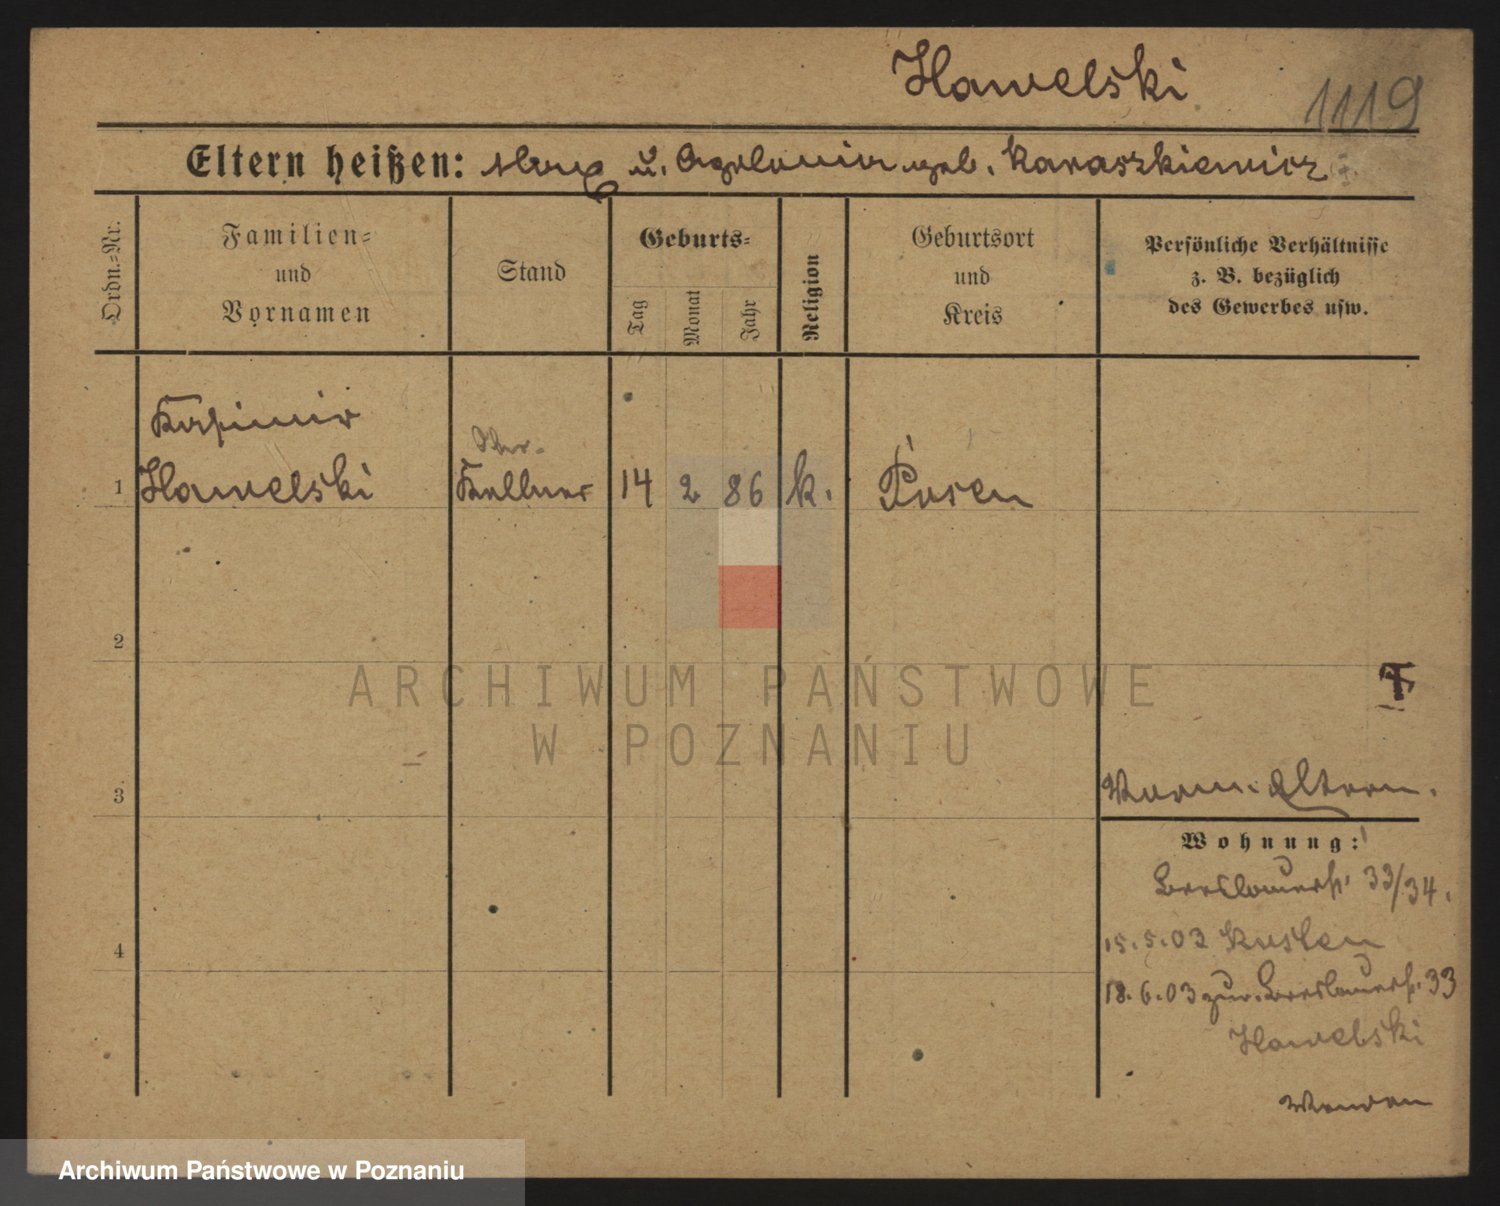 Hawelski
1119
Eltern heißen: Max u. Apolonia geb. Karaszkiewicz
Ordn.-Nr.
Familien-
und
Vornamen
Stand
Geburts-
Tag
Monat
Jahr
Religion
Geburtsort
und
Kreis
Persönliche Verhältnisse
z. B. bezüglich
des Gewerbes usw.
Kasimir
1 Hawelski Kellner 14 2 86 k. Posen
2
3
Eltern.
Wohnung:
Breslauerstr. 33/34.
15.5.03 Kosten
18.6.03 zur. Breslauerstr. 33
Hawelski
4
wenden
ARCHIWUM PAŃSTWOWE
W POZNANIU
Archiwum Państwowe w Poznaniu